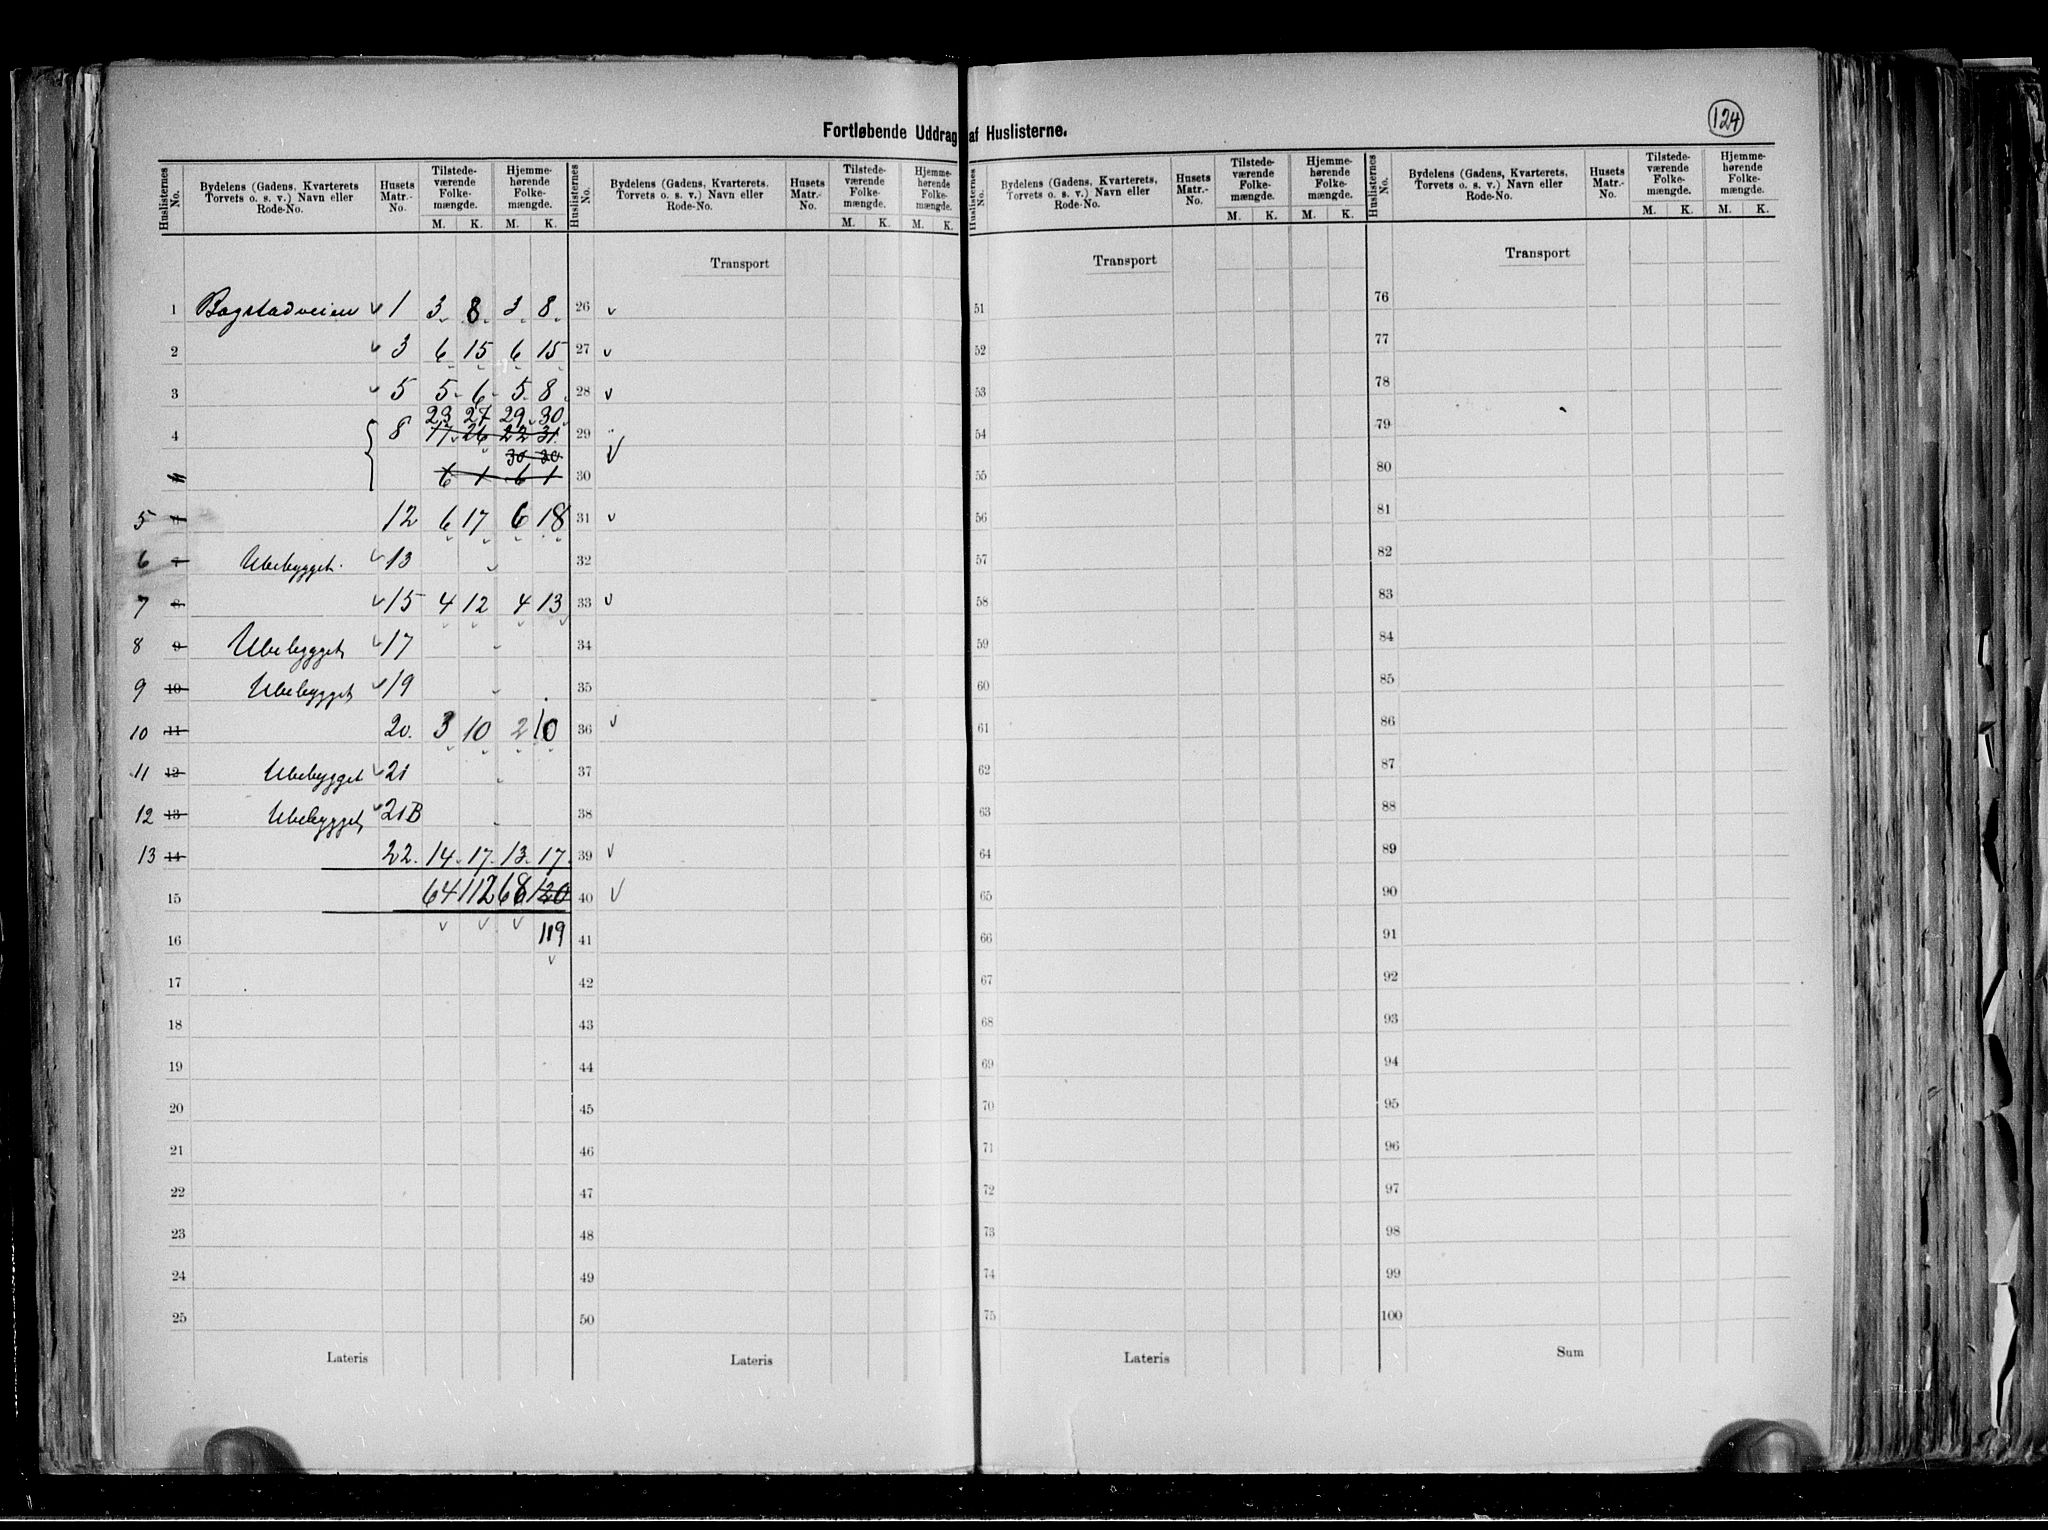 124
Fortløbende Uddrag af Huslisterne.
Huslisternes No. Bydelens (Gadens, Kvarterets, Torvets o. s. v.) Navn eller Rode-No. Husets Matr.-No. Tilstedeværende Folkemængde. M. K. Hjemmehørende Folkemængde. M. K.
Huslisternes No. Bydelens (Gadens, Kvarterets, Torvets o. s. v.) Navn eller Rode-No. Husets Matr.-No. Tilstedeværende Folkemængde. M. K. Hjemmehørende Folkemængde. M. K.
Huslisternes No. Bydelens (Gadens, Kvarterets, Torvets o. s. v.) Navn eller Rode-No. Husets Matr.-No. Tilstedeværende Folkemængde. M. K. Hjemmehørende Folkemængde. M. K.
Huslisternes No. Bydelens (Gadens, Kvarterets, Torvets o. s. v.) Navn eller Rode-No. Husets Matr.-No. Tilstedeværende Folkemængde. M. K. Hjemmehørende Folkemængde. M. K.
Transport Transport Transport
1 Bogstadveien 1 3 8 3 8 26 51 76
2 3 6 15 6 15 27 52 77
3 5 5 6 5 8 28 53 78
23 27 29 30
4 8 17 26 22 31 29 54 79
30 30
6 1 6 1 30 55 80
5 6 12 6 17 6 18 31 56 81
6 7 Ubebygget. 13 32 57 82
7 8 15 4 12 4 13 33 58 83
8 9 Ubebygget 17 34 59 84
9 10 Ubebygget 19 35 60 85
10 11 20. 3 10 2 10 36 61 86
11 12 Ubebygget 21 37 62 87
12 13 Ubebygget 21B 38 63 88
13 14 22. 14 17 13 17 39 64 89
15 64 112 68 120 40 65 90
16 119 41 66 91
17 42 67 92
18 43 68 93
19 44 69 94
20 45 70 95
21 46 71 96
22 47 72 97
23 48 73 98
24 49 74 99
25 50 75 100
Lateris Lateris Lateris Sum